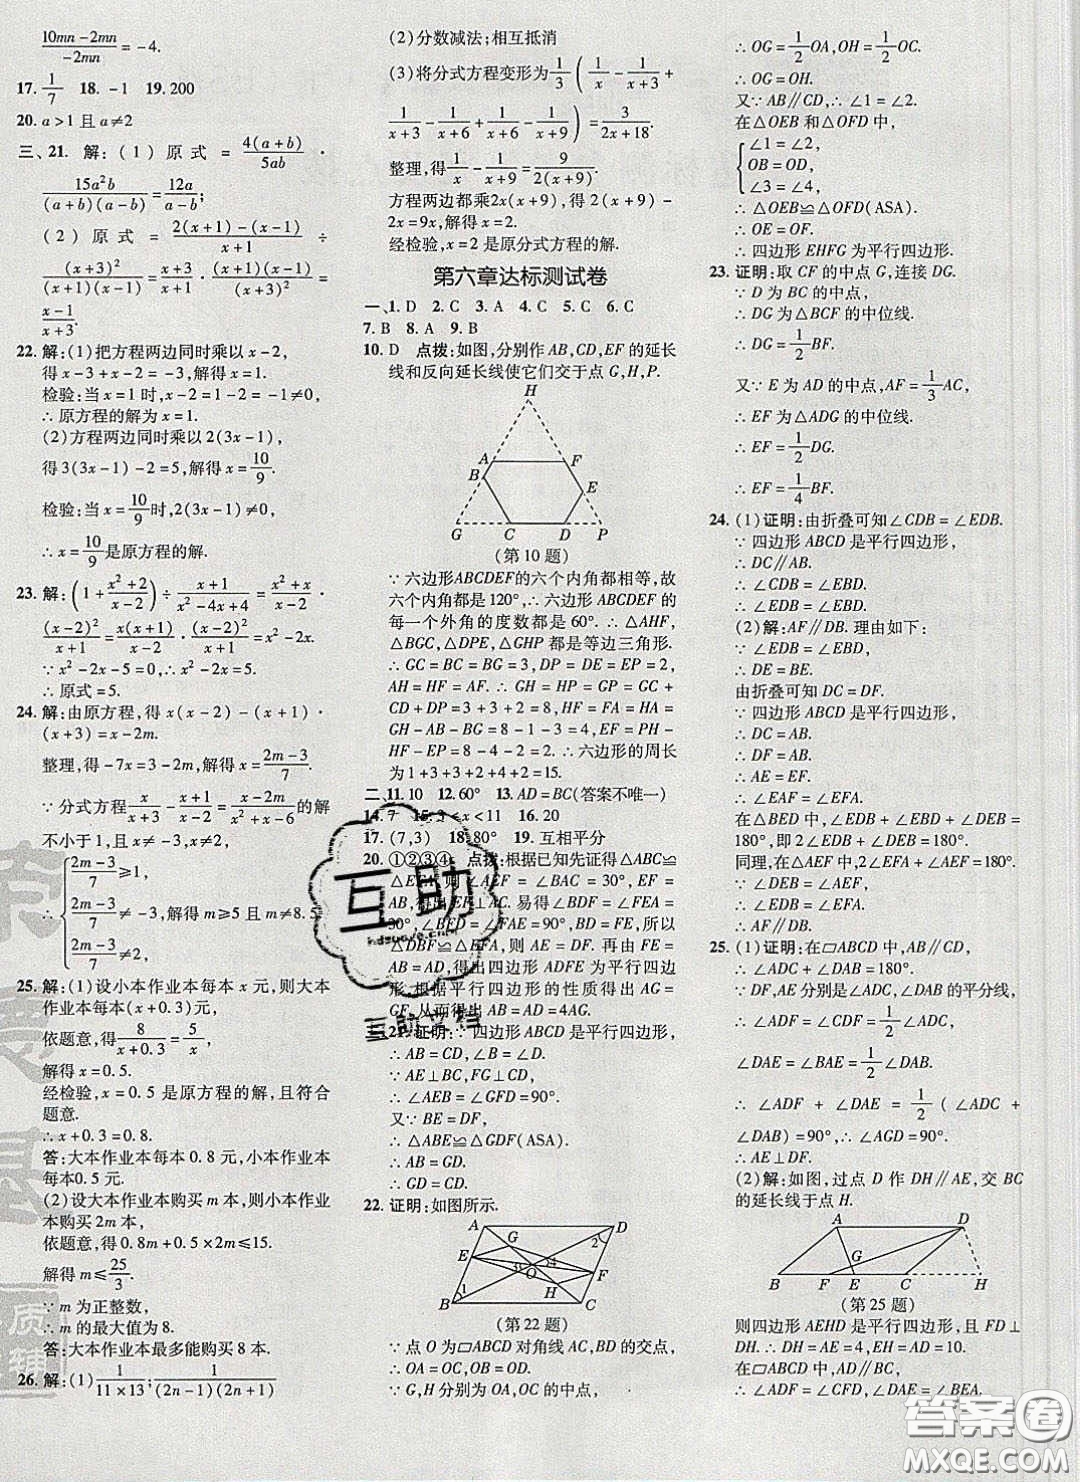 (10mn-2mn)/(-2mn)=-4.
17. 1/7 18. -1 19. 200
20. a>1 且 a≠2
三、21. 解:(1) 原式 = 4(a+b)/5ab ·
15a²b/((a+b)(a-b)) = 12a/(a-b);
(2) 原式 = (2(x+1)-(x-1))/(x+1) ÷
(x+3)²/((x+1)(x-1)) = (x+3)/(x+1) · (x+1)(x-1)/(x+3)² =
(x-1)/(x+3).
22. 解:(1)把方程两边同时乘以 x-2,
得 x-3+x-2=-3,解得 x=1.
检验:当 x=1 时,x-2=1-2=-1≠0,
∴原方程的解为 x=1.
(2)方程两边同时乘以 2(3x-1),
得 3(3x-1)-2=5,解得 x=10/9.
检验:当 x=10/9 时,2(3x-1)≠0,
∴x=10/9 是原方程的解.
23. 解:(1+(x²+2)/(x-2))÷(x+1)/(x²-4x+4)=(x²+x)/(x-2)·
(x-2)²/(x+1)=x(x+1)/(x-2)·(x-2)²/(x+1)=x²-2x.
∵x²-2x-5=0,∴x²-2x=5.
∴原式=5.
24. 解:由原方程,得 x(x-2)-(x+1)·
(x+3)=x-2m.
整理,得-7x=3-2m,解得 x=(2m-3)/7.
∵分式方程 x/(x+3)-(x+1)/(x-2)=(x-2m)/(x²+x-6) 的解
不小于1,且 x≠-3,x≠2,
(2m-3)/7≥1,
∴{(2m-3)/7≠-3,解得 m≥5 且 m≠8.5.
(2m-3)/7≠2,
25. 解:(1)设小本作业本每本 x 元,则大本
作业本每本(x+0.3)元,
依题意,得 8/(x+0.3)=5/x,
解得 x=0.5.
经检验,x=0.5 是原方程的解,且符合
题意.
∴x+0.3=0.8.
答:大本作业本每本 0.8 元,小本作业本
每本0.5 元.
(2)设大本作业本购买 m 本,则小本作业
本购买 2m 本,
依题意,得 0.8m+0.5×2m≤15.
解得 m≤25/3.
∵m 为正整数,
∴m 的最大值为 8.
答:大本作业本最多能购买 8 本.
26. 解:(1)1/(11×13);1/((2n-1)(2n+1))
(2)分数减法;相互抵消
(3)将分式方程变形为 1/3(1/x-1/(x+3)+
1/(x+3)-1/(x+6)+1/(x+6)-1/(x+9))=3/(2x+18).
整理,得 1/x-1/(x+9)=9/(2(x+9)).
方程两边都乘2x(x+9),得 2(x+9)-
2x=9x,解得 x=2.
经检验,x=2 是原分式方程的解.
第六章达标测试卷
一、1. D 2. C 3. A 4. C 5. C 6. C
7. B 8. A 9. B
10. D 点拨:如图,分别作 AB,CD,EF 的延长
线和反向延长线使它们交于点 G,H,P.
H
A F
B E
G C D P
(第 10 题)
∵六边形ABCDEF的六个内角都相等,故
六个内角都是 120°,∴六边形 ABCDEF 的
每一个外角的度数都是 60°. ∴△AHF,
△BGC,△DPE,△GHP 都是等边三角形.
∴GC=BC=BG=3,DP=EP=2,
AH=HF=AF,GH=HP=GP=GC+
CD+DP=3+3+2=8,HF=FA=HA=
GH-AB-BG=8-1-3=4,EF=PH-
HF-EP=8-4-2=2. ∴六边形的周长
为 1+3+3+2+2+4=15.
二、11. 10 12. 60° 13. AD=BC(答案不唯一)
14. 7 15. 3<x<11 16. 20
17. (7,3) 18. 80° 19. 互相平分
20. ①②③④ 点拨:根据已知先证得△ABC≌
△EFA,则∠AEF=∠BAC=30°,EF=
AB,得出 EF⊥AC. 易得∠BDF=∠FEA=
30°,∠BFD=∠FAE=90°,BD=FE,所以
△DBF≌△EFA,则 AE=DF. 再由 FE=
AB=AD,得出四边形 ADFE 为平行四边
形,根据平行四边形的性质得出 AG=
GF,从而得出 AD=4AG.
三、21. 证明:∵四边形 ABCD 是平行四边形,
∴AB=CD,∠B=∠D.
∵AE⊥BC,GF⊥AD,
∴∠AEB=∠GFD=90°.
又∵BE=DF,
∴△ABE≌△GDF(ASA).
∴AB=GD.
∴GD=CD.
22. 证明:如图所示.
A D
G 2
E 3 4
O F
1 H
B C
(第 22 题)
∵点 O 为▱ABCD 对角线 AC,BD 的交点,
∴OA=OC,OB=OD.
∵G,H 分别为 OA,OC 的中点,
∴OG=1/2OA,OH=1/2OC.
∴OG=OH.
又∵AB∥CD,∴∠1=∠2.
在△OEB 和△OFD 中,
∠1=∠2,
{OB=OD,
∠3=∠4,
∴△OEB≌△OFD(ASA).
∴OE=OF.
∴四边形 EHFG 为平行四边形.
23. 证明:取 CF 的中点 G,连接 DG.
∵D 为 BC 的中点,
∴DG 为△BCF 的中位线.
∴DG=1/2BF.
又∵E 为 AD 的中点,AF=1/3AC,
∴EF 为△ADG 的中位线.
∴EF=1/2DG.
∴EF=1/4BF.
24. (1)证明:由折叠可知∠CDB=∠EDB.
∵四边形 ABCD 是平行四边形,
∴DC∥AB.
∴∠CDB=∠EBD.
∴∠EDB=∠EBD.
(2)解:AF∥DB. 理由如下:
∵∠EDB=∠EBD,
∴DE=BE.
由折叠可知 DC=DF.
∵四边形 ABCD 是平行四边形,
∴DC=AB.
∴DF=AB.
∴AE=EF.
∴∠EAF=∠EFA.
在△BED 中,∠EDB+∠EBD+∠DEB=
180°,即 2∠EDB+∠DEB=180°.
同理,在△AEF 中,2∠EFA+∠AEF=180°.
∵∠DEB=∠AEF,
∴∠EDB=∠EFA.
∴AF∥DB.
25. (1)证明:在▱ABCD 中,AB∥CD,
∴∠ADC+∠DAB=180°.
∵DF,AE 分别是∠ADC,∠DAB 的平分线,
∴∠ADF=∠CDF=1/2∠ADC,
∠DAE=∠BAE=1/2∠DAB.
∴∠ADF+∠DAE=1/2(∠ADC+
∠DAB)=90°,∴AE⊥DF.
(2)解:如图,过点 D 作 DH∥AE,交 BC
的延长线于点 H.
A D
G
B F E C H
(第 25 题)
则四边形 AEHD 是平行四边形,且 FD⊥
DH. ∴DH=AE=4,EH=AD=10.
在▱ABCD 中,AD∥BC,
∴∠ADF=∠CFD,∠DAE=∠BEA.
互助
hdzuoye.com
互助文档
答案圈
MXQE.COM
质
辅